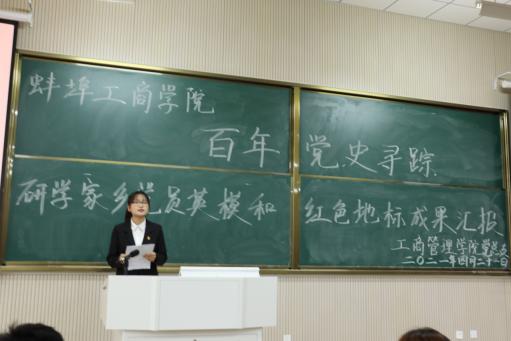 蚌埠工商学院
百年 党史寻踪
研学家乡党员英模和 红色地标成果汇报
工商管理学院党总支
二〇二一年四月二十一日